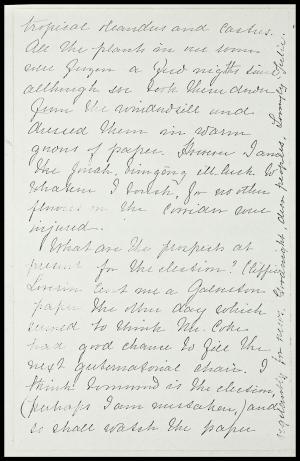 tropical oleanders and cactus.
All the plants in our room
were frozen a few nights since
although we took them down
from the windowsill and
dressed them in warm
gowns of paper. However I am
the Jonah, bringing ill luck to
whatever I touch, for no other
flowers in the corridor were
injured.
What are the prospects at
present for the election?
Cousin sent me a Galveston
paper the other day which
seemed to think Mr. Coke
had good chance to fill the
next gubernatorial chair. I
think tomorrow is the election,
(perhaps I am mistaken,) and
so shall watch the paper
for news. Goodnight, dear peoples. Lovingly Julie.